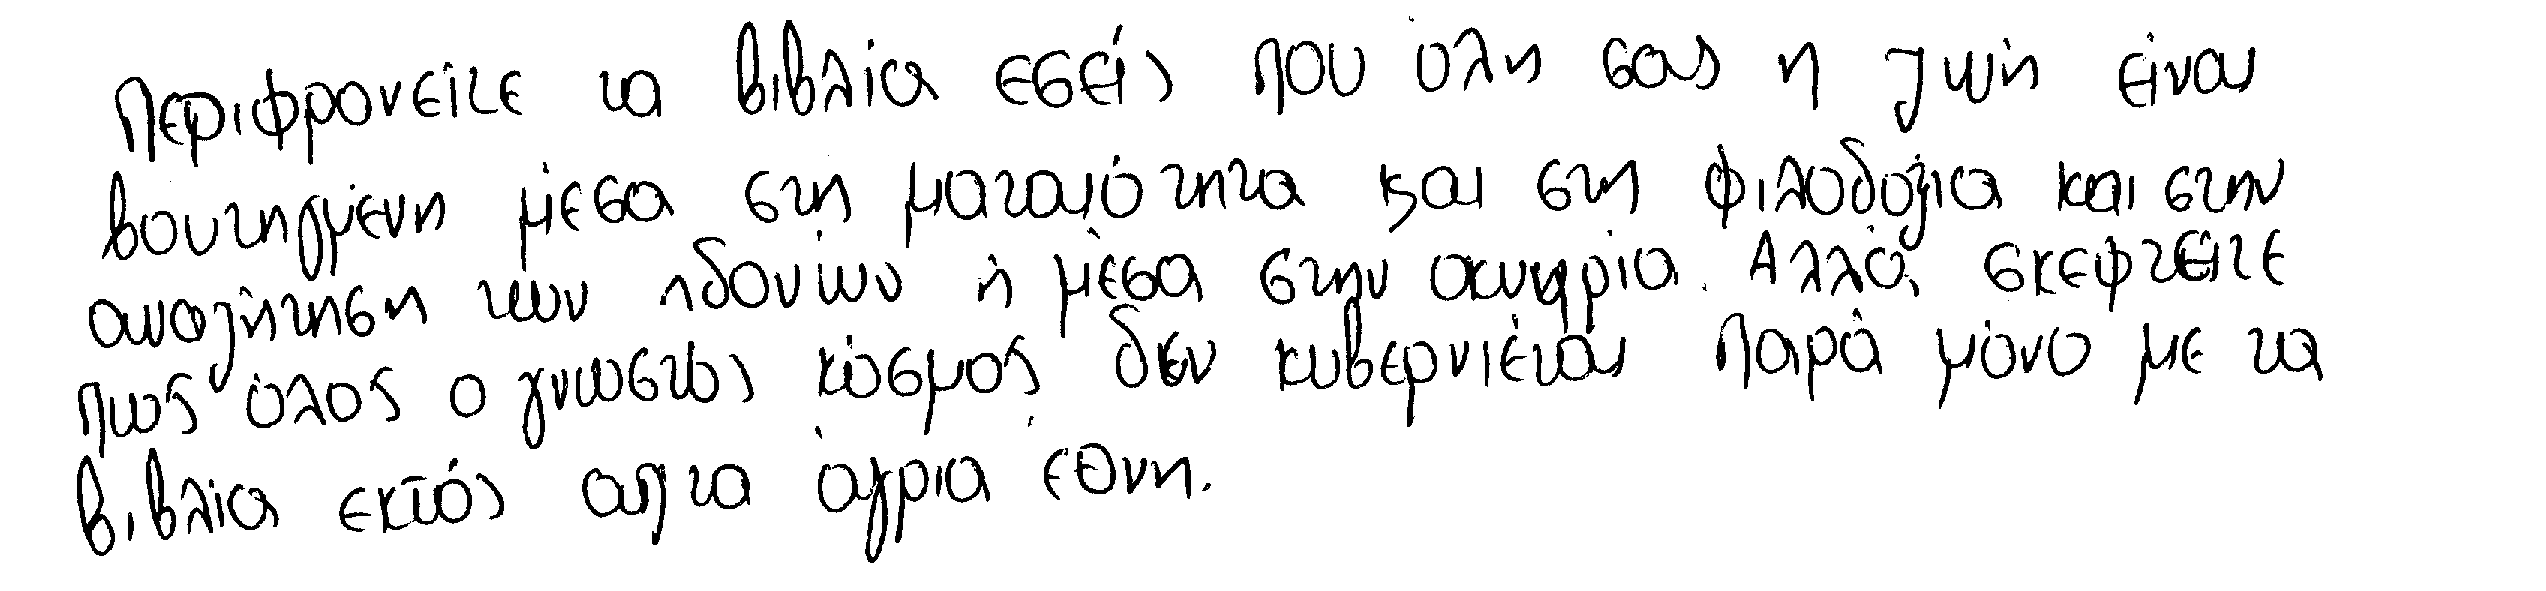 Περιφρονείτε τα βιβλία εσείς που όλη σας η ζωή είναι
βουτηγμένη μέσα στη ματαιότητα και στη φιλοδοξία και στην
αναζήτηση των ηδονών ή μέσα στην οκνηρία. Αλλά σκεφτείτε
πως όλος ο γνωστός κόσμος δεν κυβερνιέται παρά μόνο με τα
βιβλία εκτός απ τα άγρια έθνη.